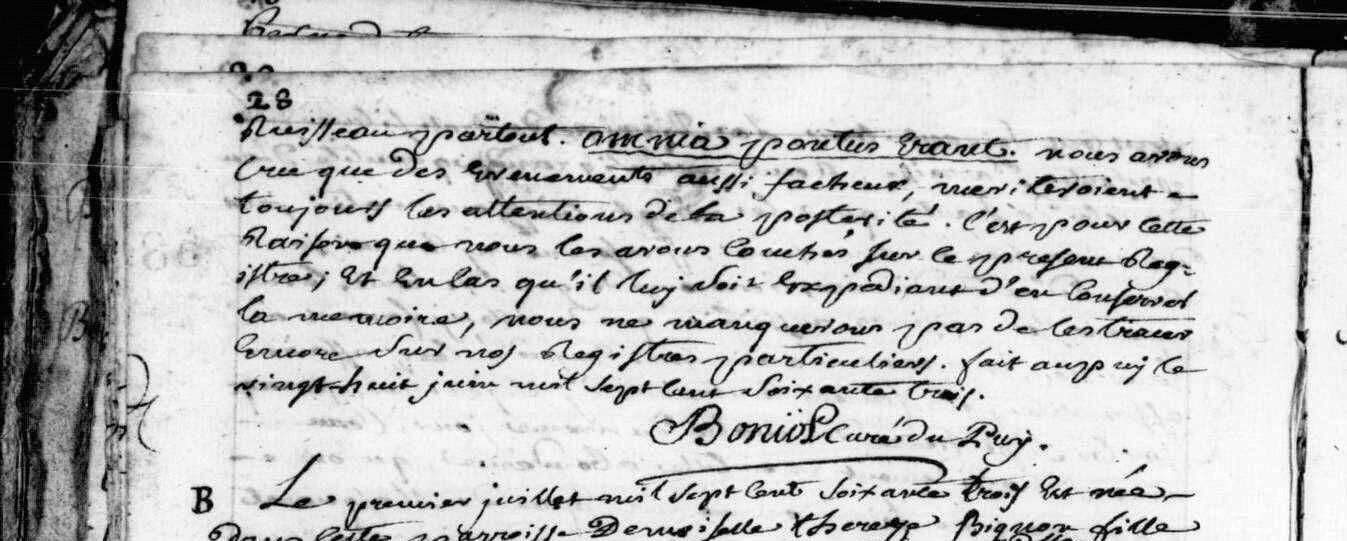 28
Ruisseau partout. omnia pontus erant. nous avons
cru que des evenements aussi facheux, meriteroient
toujours les attentions de la posterité. c'est pour cette
Raison que nous les avons couchés sur le present Reg-
istre; Et en cas qu'il luy soit Expediant d'en conserver
la memoire, nous ne manquerons pas de les tracer
Encore sur nos Registres particuliers. fait au puy le
vingt-huit juin mil sept cent soixante trois.
Boniol curé du Puy.
B Le premier juillet mil sept cent soixante trois Est née
Dans cette parroisse Demoiselle therese Bignon fille